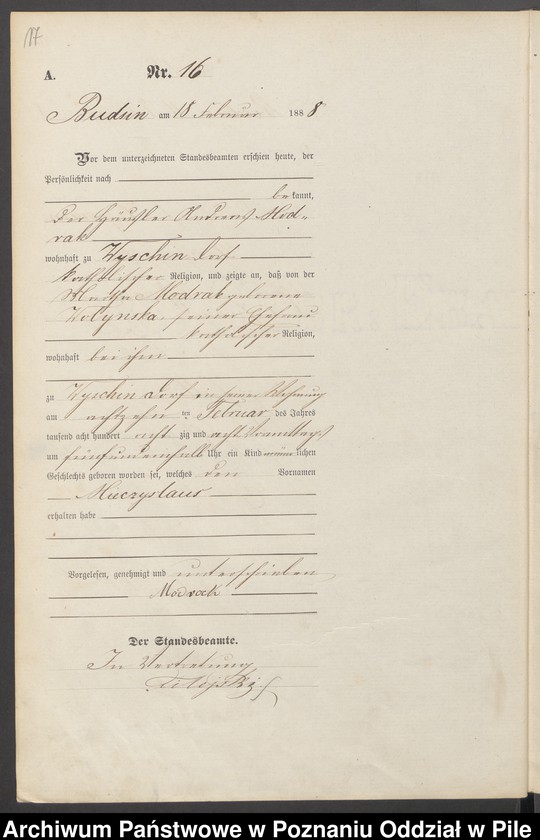 17
A.
Nr. 16
Budsin am 18 Februar 1888
Vor dem unterzeichneten Standesbeamten erschien heute, der
Persönlichkeit nach
bekannt,
Der Häusler Andreas Mod-
rak
wohnhaft zu Wyschin Dorf
katholischer Religion, und zeigte an, daß von der
Modrak geborene
seiner Ehefrau
katholischer Religion,
wohnhaft bei ihm
zu Wyschin Dorf in seiner Wohnung
am achtzehn ten Februar des Jahres
tausend acht hundert acht zig und acht Vormittags
um Uhr ein Kind männlichen
Geschlechts geboren worden sei, welches den Vornamen
Mieczyslaus
erhalten habe
Vorgelesen, genehmigt und unterschrieben
Modrock
Der Standesbeamte.
In Vertretung
Archiwum Państwowe w Poznaniu Oddział w Pile